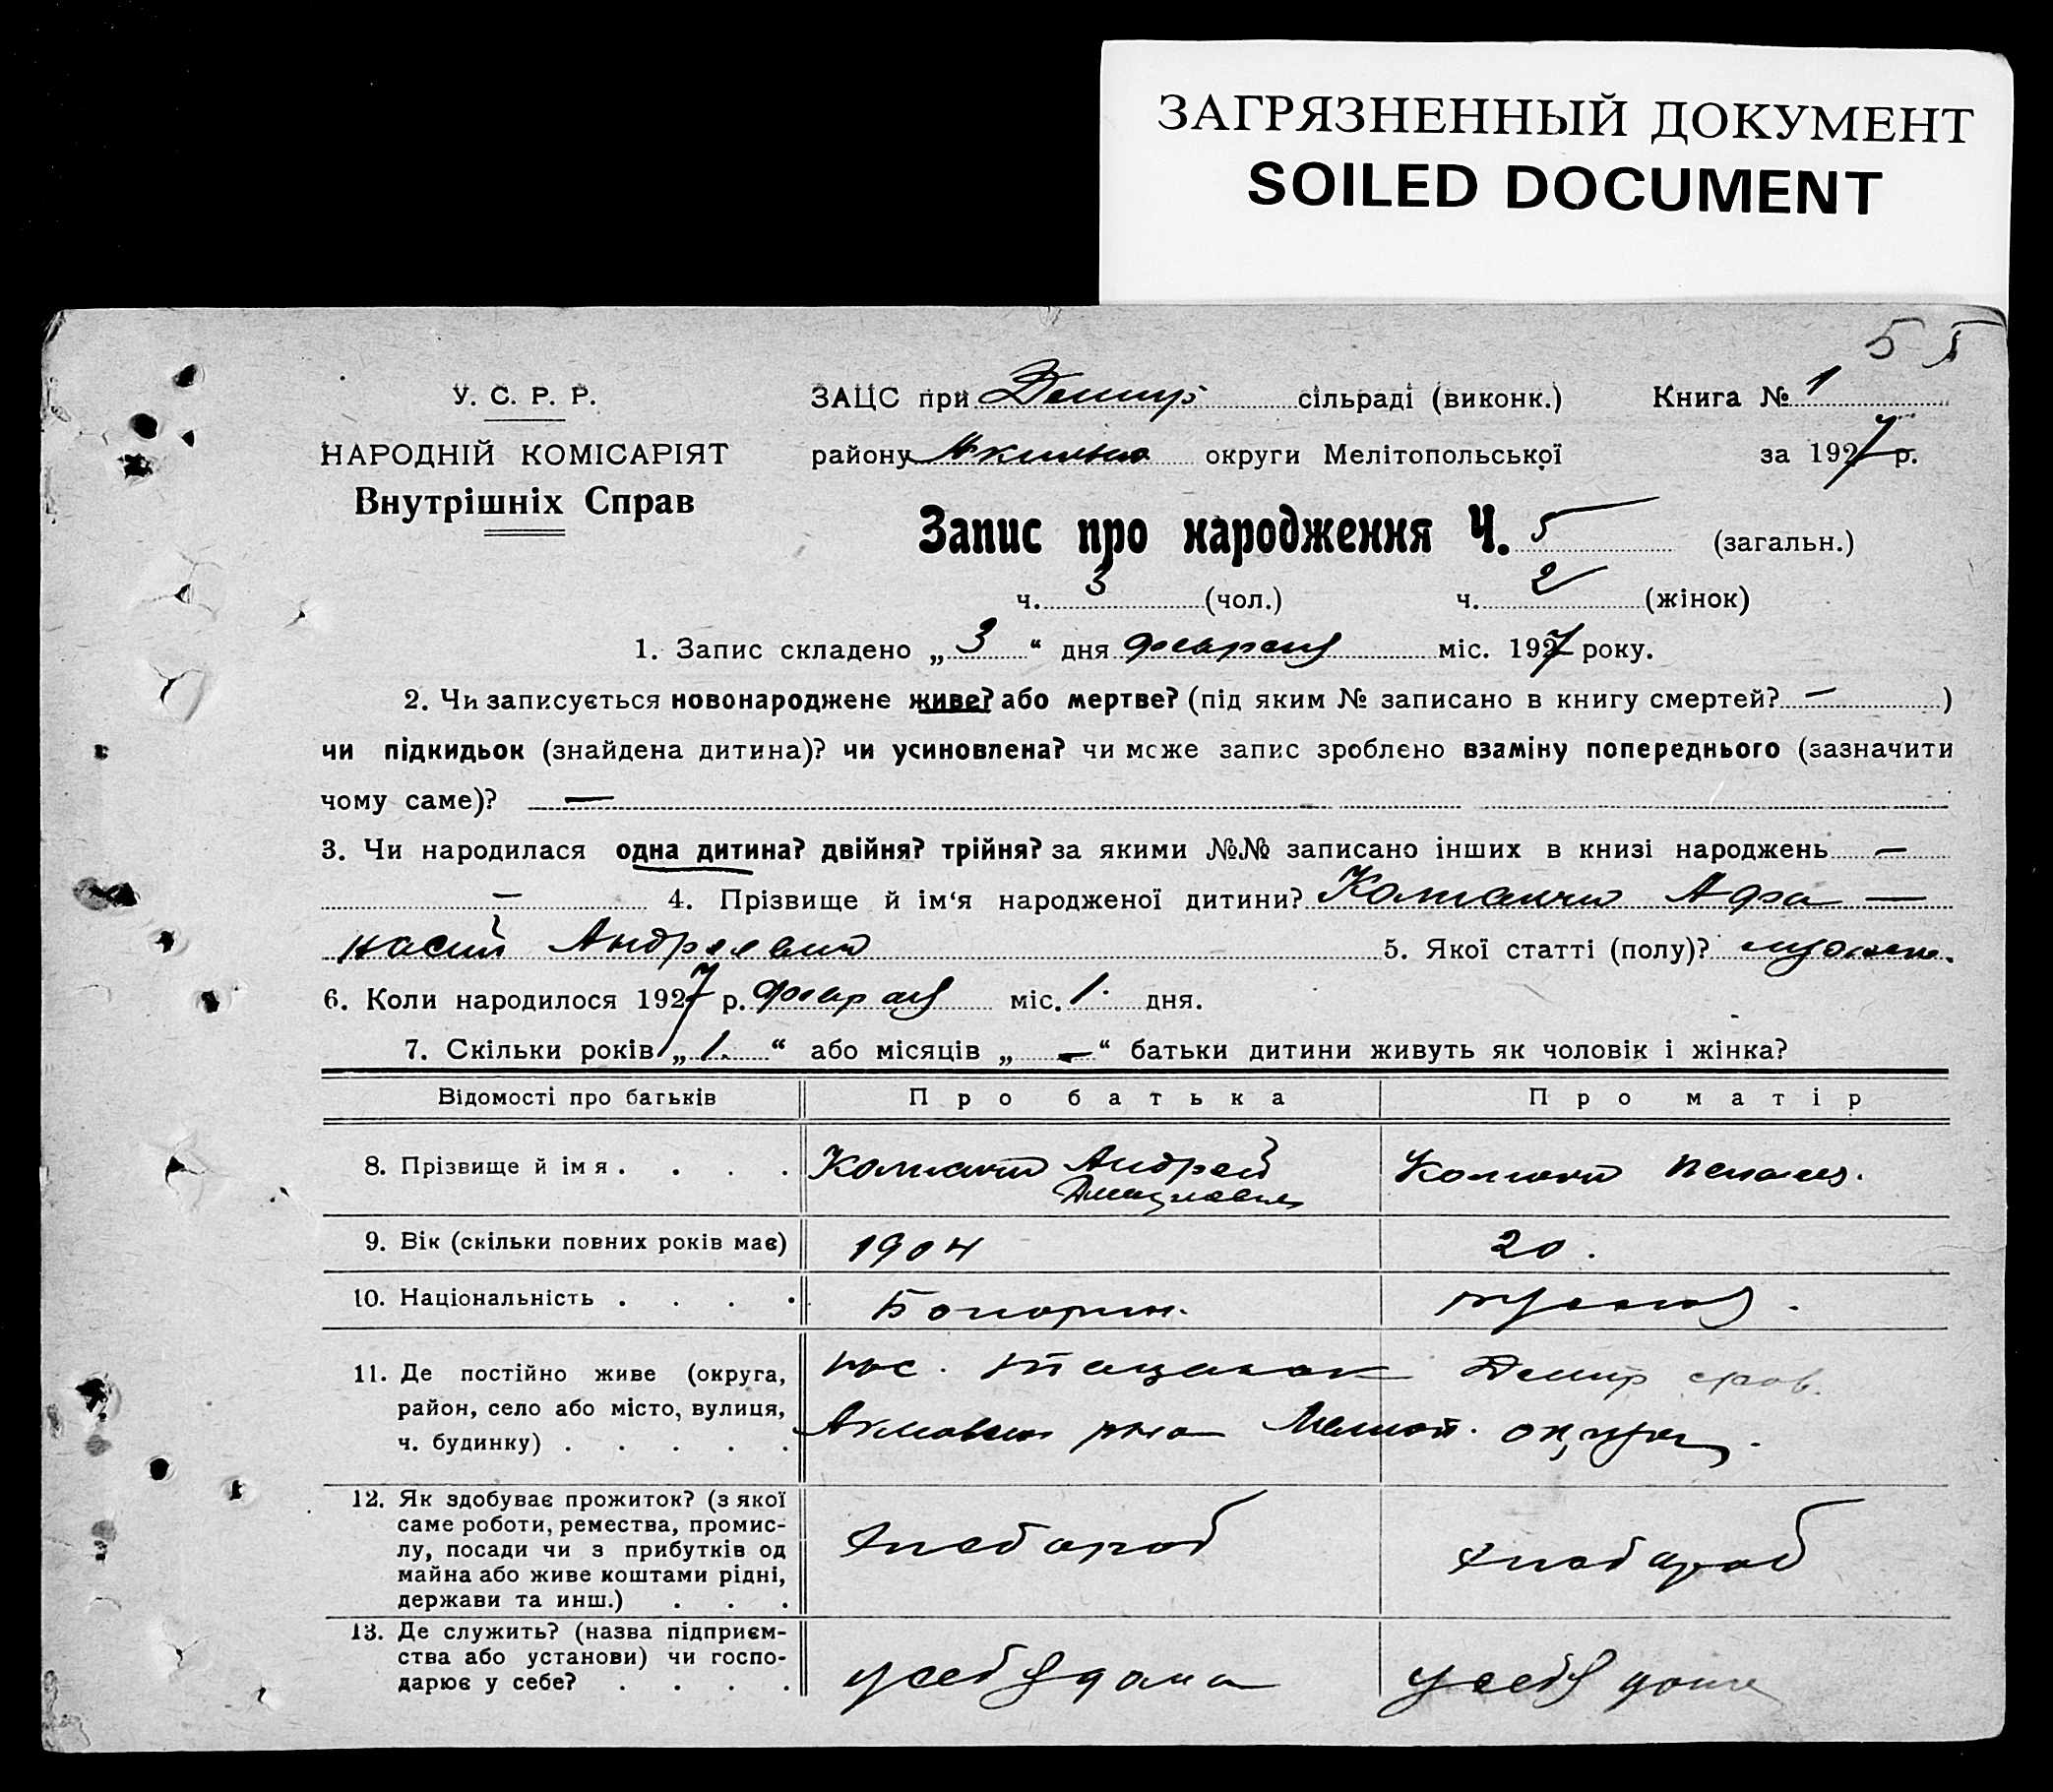 ЗАГРЯЗНЕННЫЙ ДОКУМЕНТ
SOILED DOCUMENT
5 5
У. С. Р. Р.
НАРОДНІЙ КОМІСАРІЯТ
Внутрішніх Справ
ЗАЦС при сільраді (виконк.) Книга № 1
району округи Мелітопольської за 1927 р.
Запис про народження Ч. 5 (загальн.)
ч. 3 (чол.) ч. 2 (жінок)
1. Запис складено „ 3 “ дня февраля міс. 1927 року.
2. Чи записується новонароджене живе? або мертве? (під яким № записано в книгу смертей? — )
чи підкидьок (знайдена дитина)? чи усиновлена? чи може запис зроблено взаміну попереднього (зазначити
чому саме)? —
3. Чи народилася одна дитина? двійня? трійня? за якими №№ записано інших в книзі народжень —
— 4. Прізвище й ім‘я народженої дитини? Афа —
насий Андреевич 5. Якої статті (полу)?
6. Коли народилося 1927 р. февраля міс. 1 дня.
7. Скільки років „ 1. “ або місяців „ — “ батьки дитини живуть як чоловік і жінка?
Відомості про батьків Про батька Про матір
8. Прізвище й ім я . . . . Андрей
9. Вік (скільки повних років має) 1904 20.
10. Національність . . . . Болгарин.
11. Де постійно живе (округа,
район, село або місто, вулиця,
ч. будинку) . . . . . Мелитоп. округа.
12. Як здобуває прожиток? (з якої
саме роботи, ремества, промис-
лу, посади чи з прибутків од
майна або живе коштами рідні,
держави та инш.) . . . хлебороб хлебороб
13. Де служить? (назва підприєм-
ства або установи) чи госпо-
дарює у себе? . . . . у себя дома у себя доме